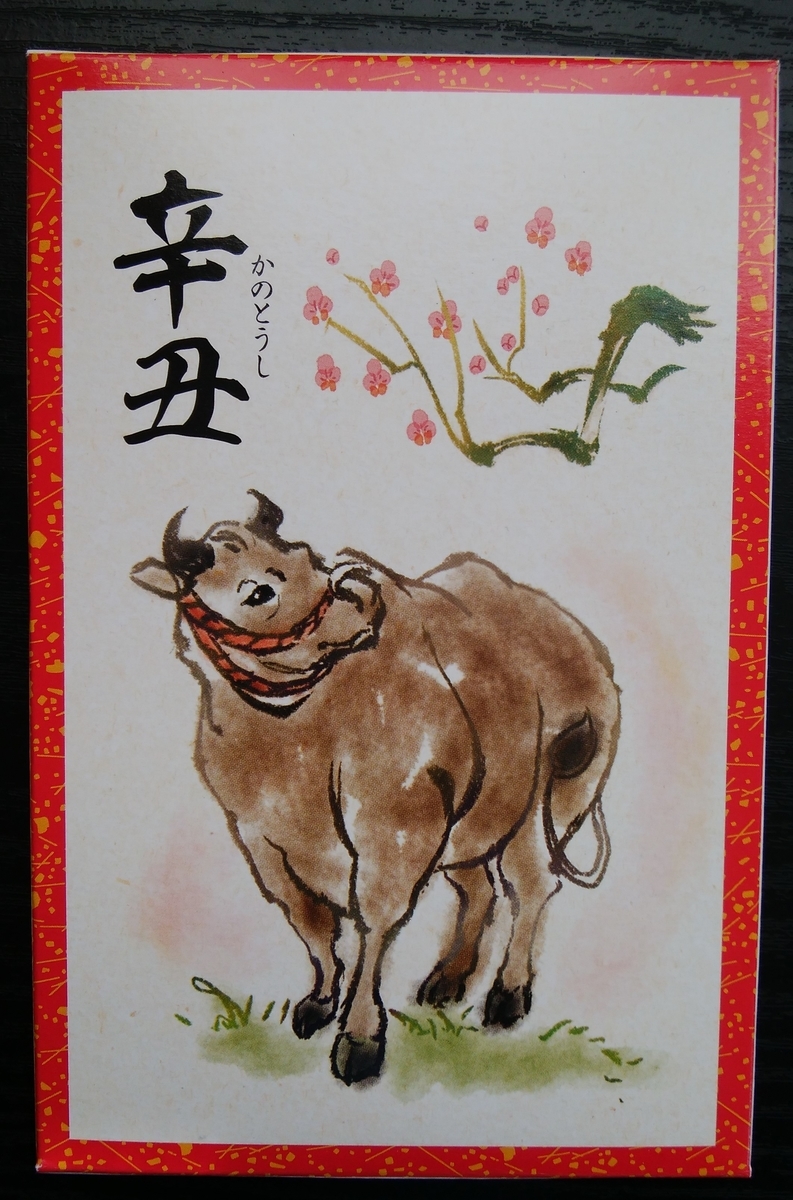 辛丑
かのとうし